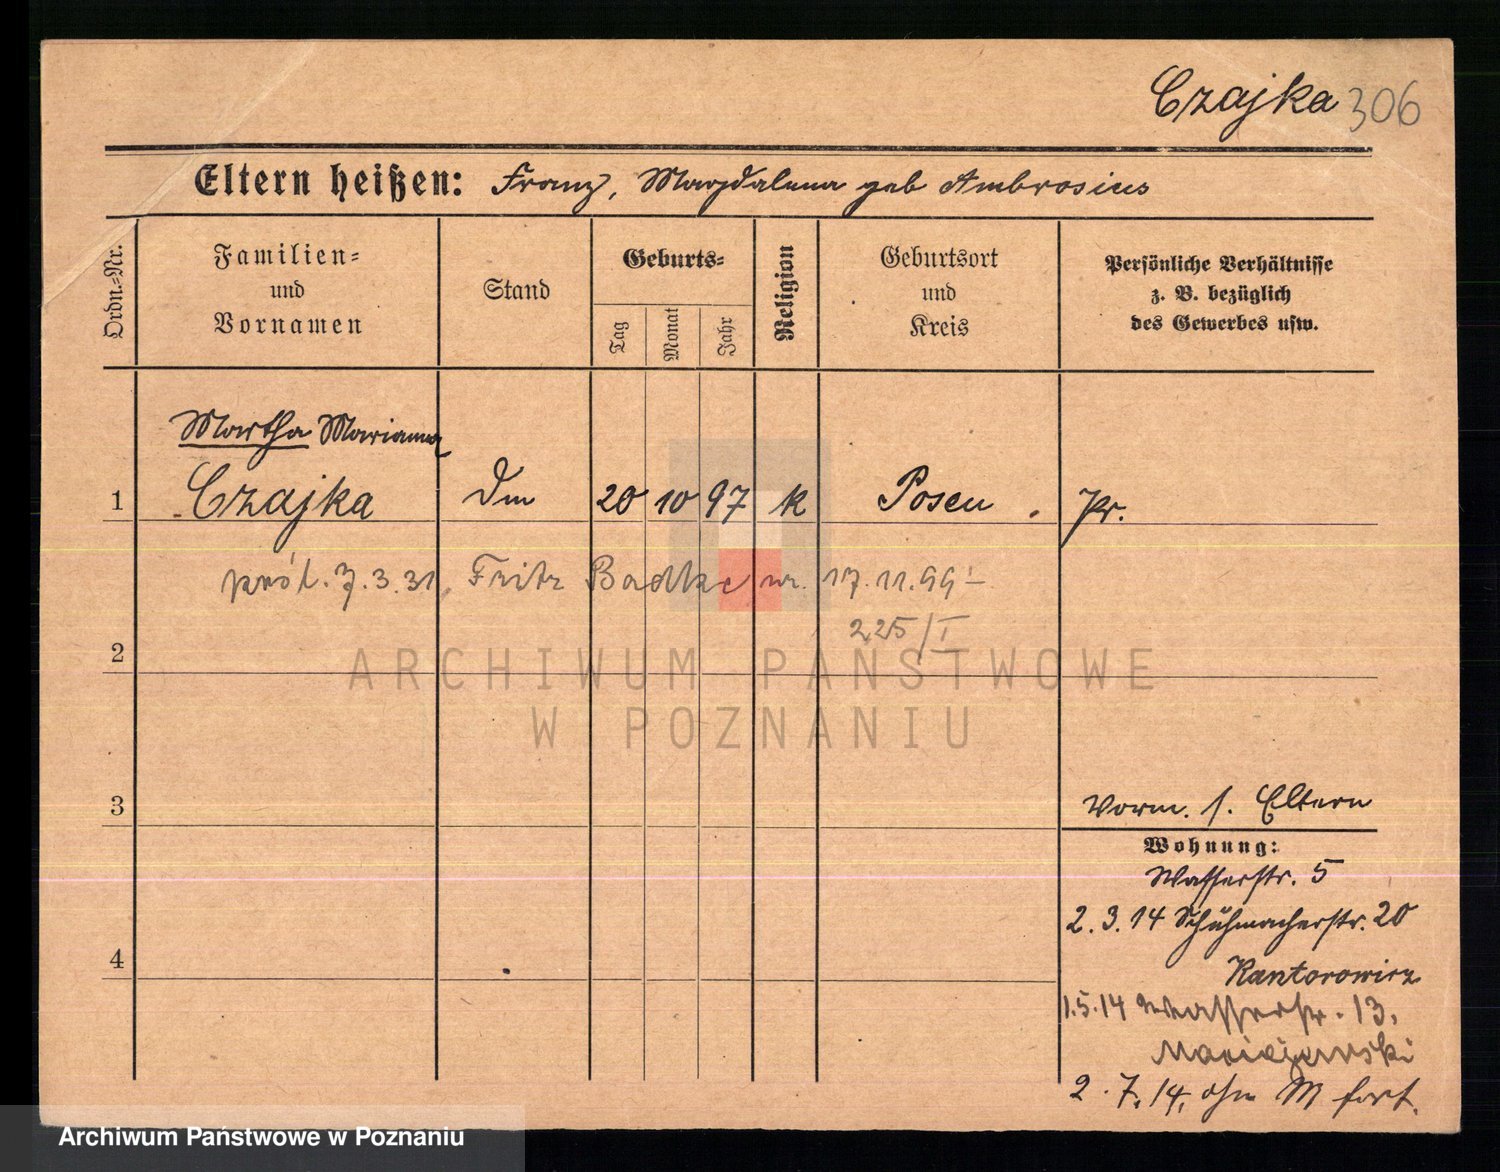 Czajka 306
Eltern heißen: Franz, Magdalena geb Ambrosius
Ordn.-Nr.
Familien-
und
Vornamen
Stand
Geburts-
Tag
Monat
Jahr
Religion
Geburtsort
und
Kreis
Persönliche Verhältnisse
z. B. bezüglich
des Gewerbes usw.
Martha Marianna
1 Czajka Dm 20 10 97 k Posen Pr.
7.3.31, Fritz Badtke ur. 17.11.99
225/I
2
ARCHIWUM PAŃSTWOWE
W POZNANIU
3
Vorm. s. Eltern
Wohnung:
Wasserstr. 5
2.3.14 Schuhmacherstr. 20
Kantorowicz
4
1.5.14 Wasserstr. 13.
2.7.14. ohn M fort.
Archiwum Państwowe w Poznaniu